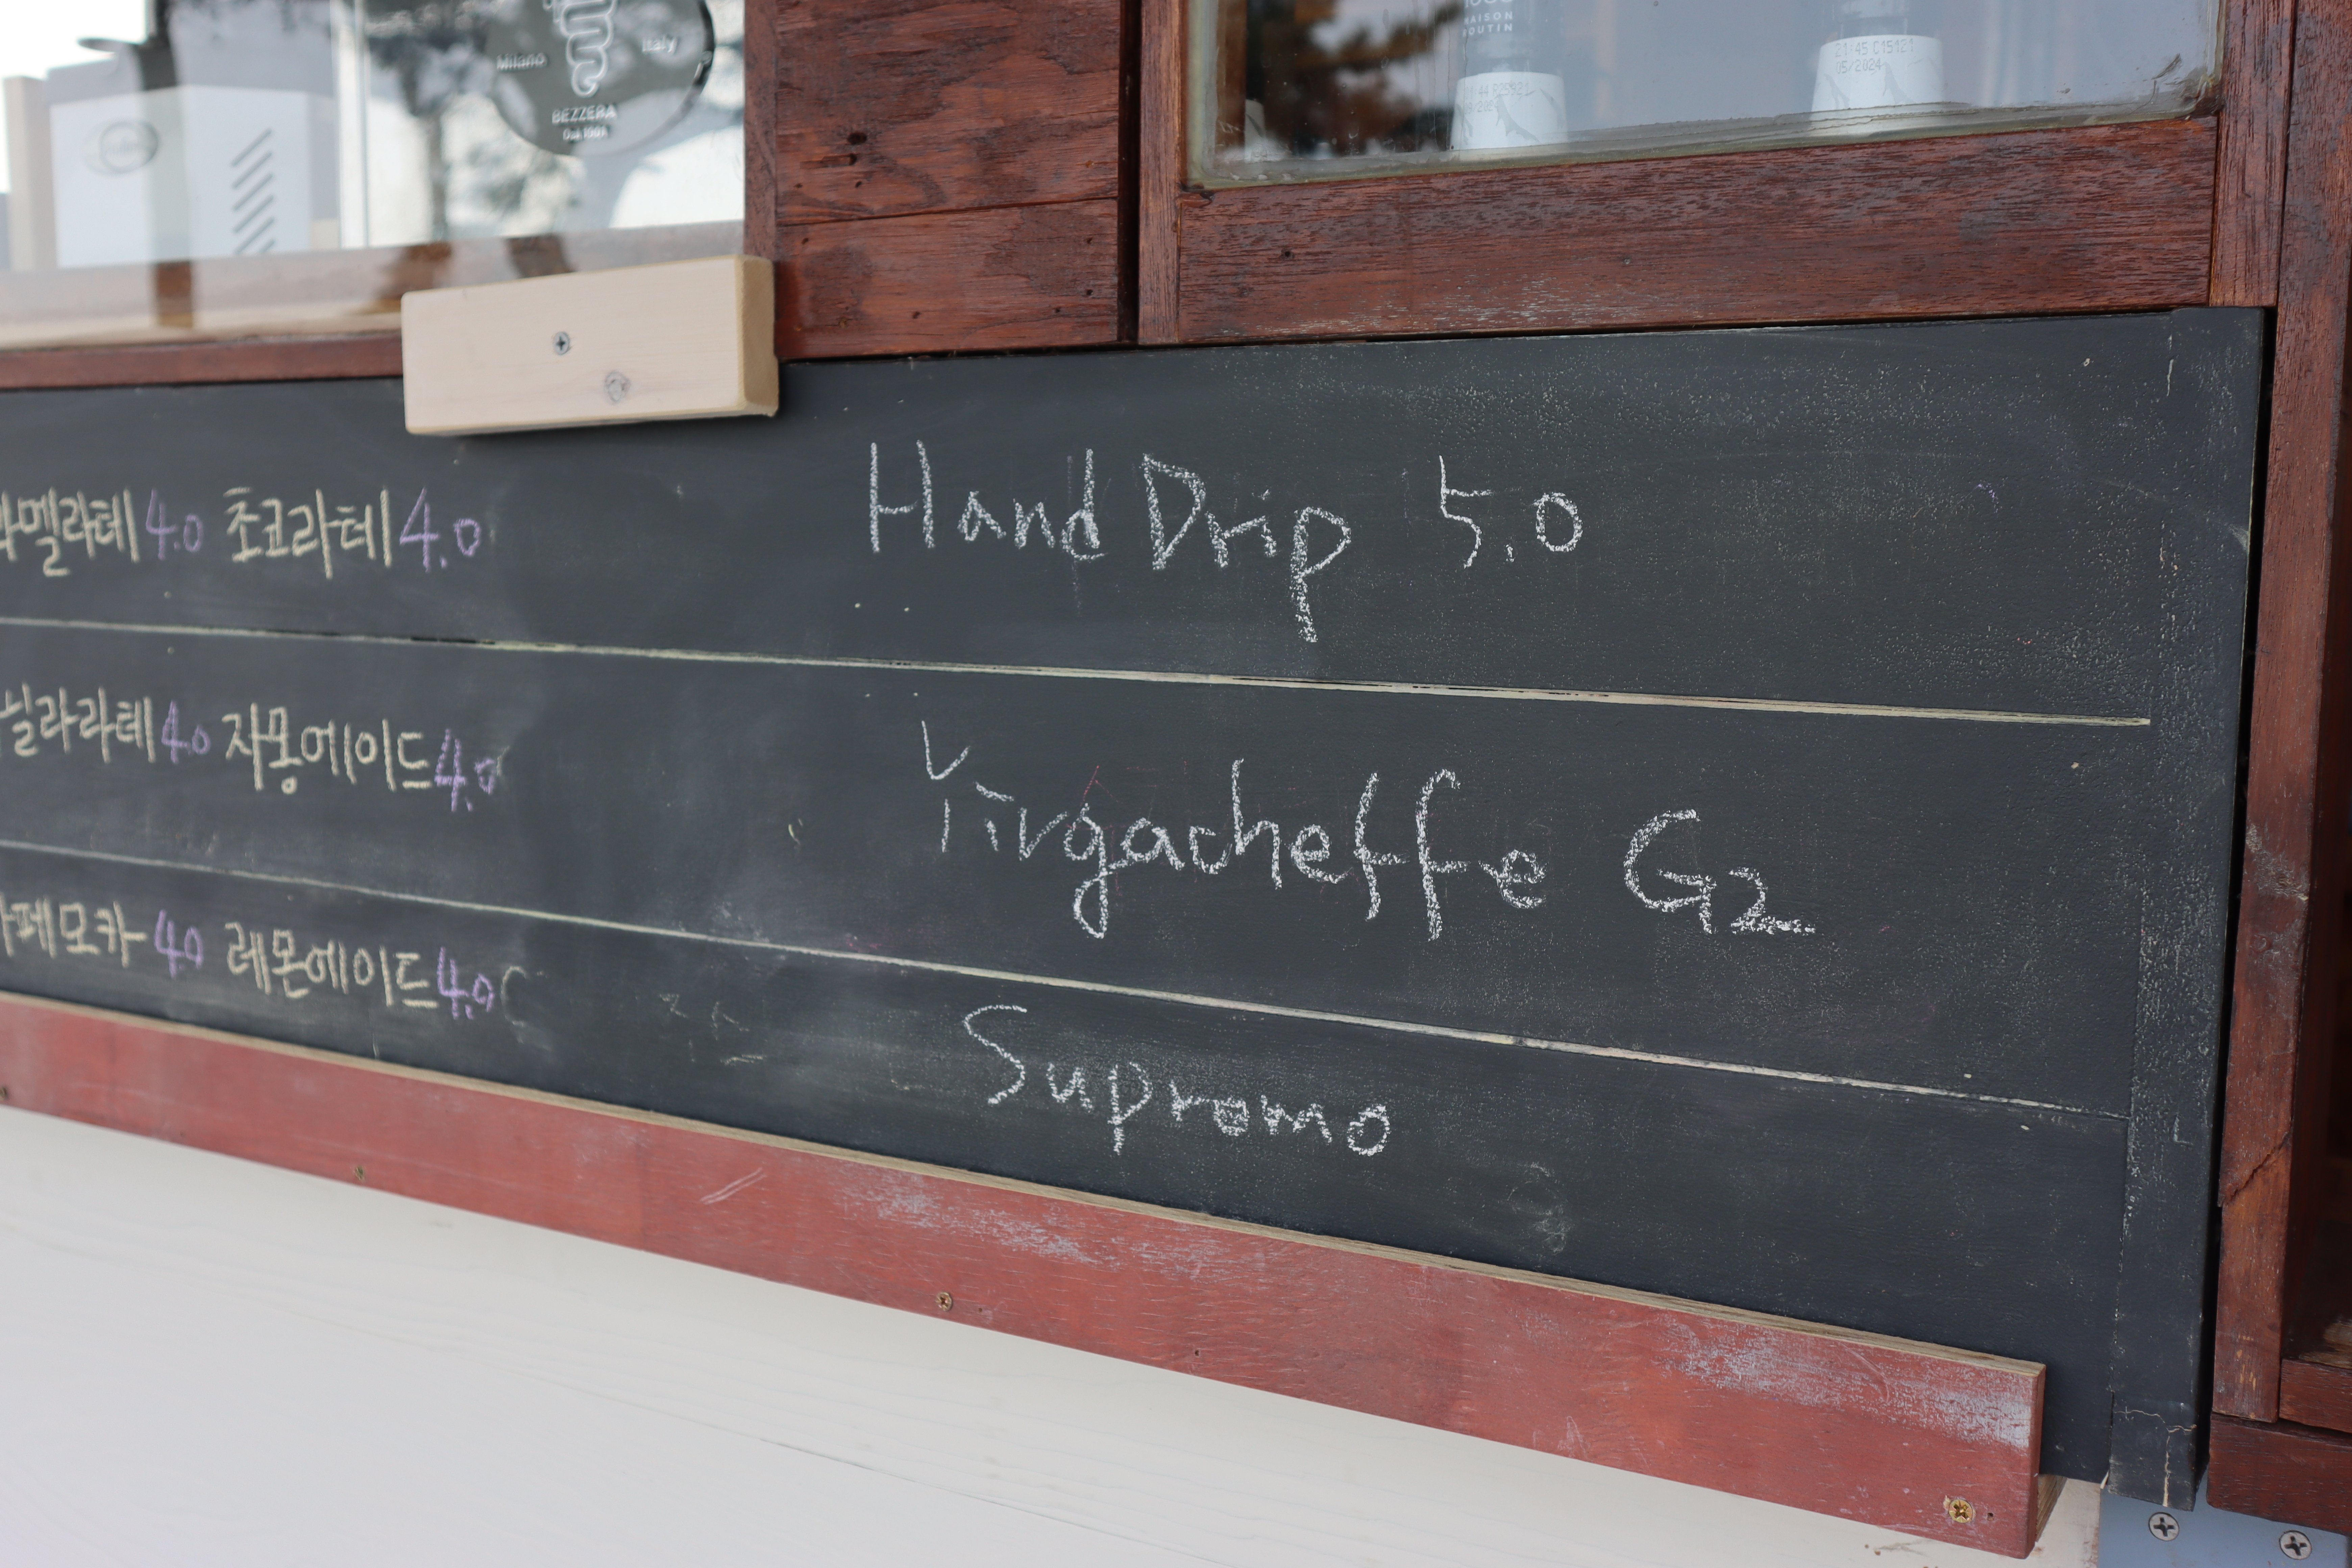 Milano Italy
BEZZERA
MAISON
ROUTIN
21:45 C15121
05/2024
라멜라테 4.0 초코라테 4.0
Hand Drip 5.0
닐라라테 4.0 자몽에이드 4.0
Yirgacheffe G2
카페모카 4.0 레몬에이드 4.0
Supromo